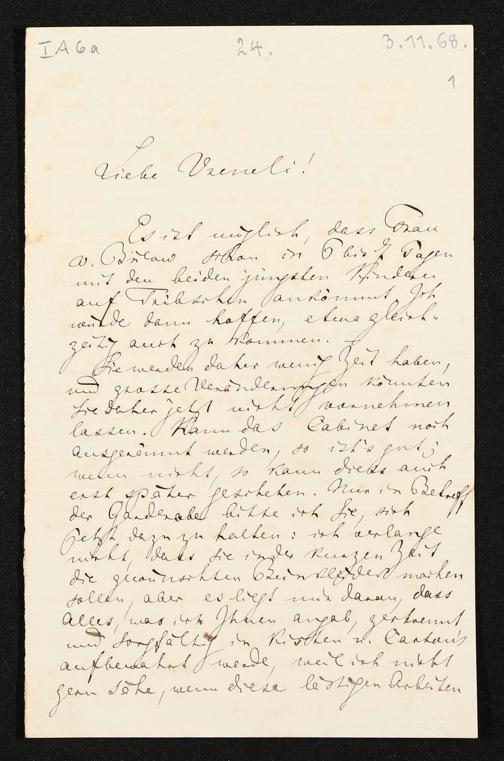 I A 6 a 24. 3.11.68.
1
Liebe Vreneli!
Es ist möglich, dass Frau
v. Bülow schon in 6 bis 7 Tagen
mit den beiden jüngsten Kindern
auf Tribschen ankömmt. Ich
würde dann hoffen, etwa gleich-
zeitig auch zu kommen.
Sie werden daher wenig Zeit haben,
und grosse Veränderungen könnten
Sie daher jetzt nicht vornehmen
lassen. Kann das Cabinet noch
ausgeräumt werden, so ist's gut;
wenn nicht, so kann diess auch
erst später geschehen. Nur in Betreff
der Garderobe bitte ich Sie, sich
jetzt dazu zu halten: ich verlange
nicht, dass Sie in der kurzen Zeit
die gewünschten Beinkleider machen
sollen, aber es liegt mir daran, dass
Alles, was ich Ihnen angab, zertrennt
und sorgfältig in Kisten u. Cartons
aufbewahrt werde, weil ich nicht
gern sähe, wenn diese lästigen Arbeiten